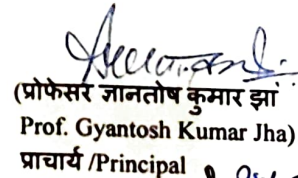 (प्रोफेसर ज्ञानतोष कुमार झा
Prof. Gyantosh Kumar Jha)
प्राचार्य /Principal